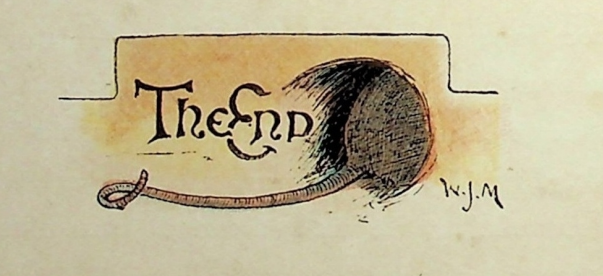 The End
W.J.M